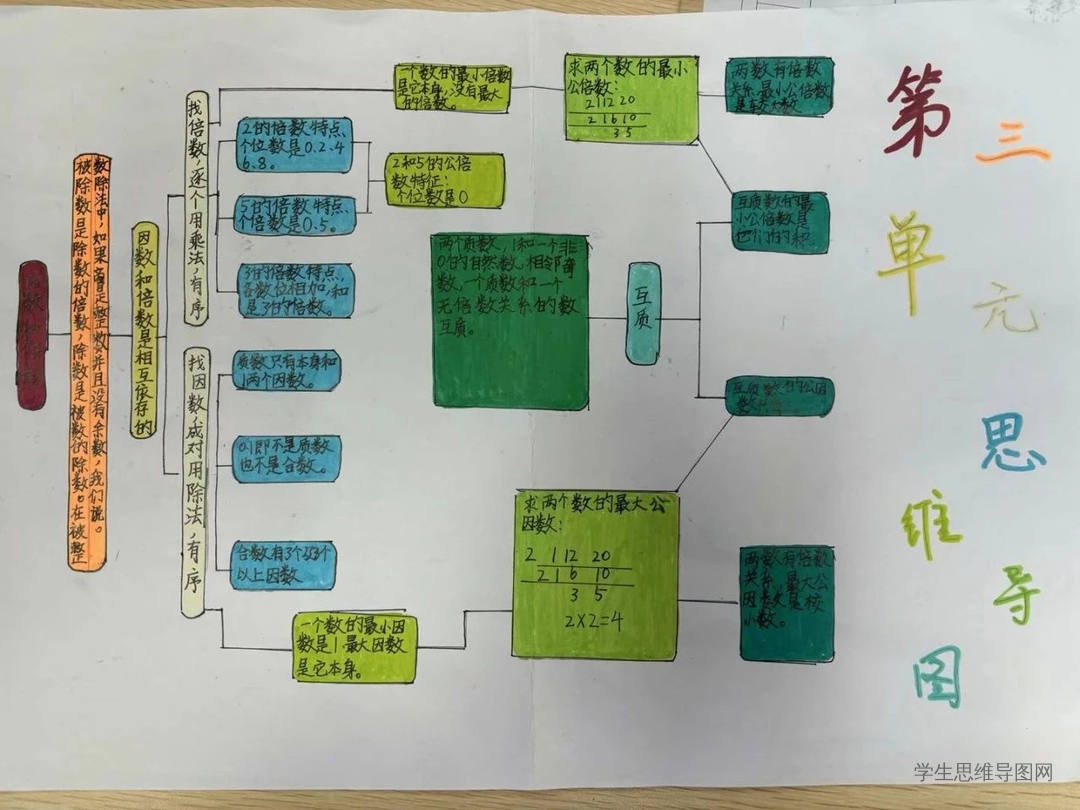 第三单元思维导图
因数和倍数
在被整
数除法中,如果商是整数并且没有余数,我们说。
被除数是除数的倍数,除数是被数的除数。
因数和倍数是相互依存的
找倍数,逐个用乘法,有序
一个数的最小倍数
是它本身,没有最大
的倍数。
求两个数的最小
公倍数:
2 12 20
2 6 10
3 5
两数有倍数
关系,最小公倍数
是较大数
2的倍数特点、
个位数是0.2.4
6.8。
2和5的公倍
数特征:
个位数是0
5的倍数特点、
个倍数是0.5。
3的倍数特点、
各数位相加,和
是3的倍数。
互质数的最
小公倍数是
他们的积
两个质数,1和一个非
0的自然数,相邻奇
数,一个质数和一个
无倍数关系的数
互质。
互质
互质数的公因
找因数,成对用除法,有序
质数只有本身和
1两个因数。
0.1即不是质数
也不是合数。
合数有3个或3个
以上因数
一个数的最小因
数是1最大因数
是它本身。
求两个数的最大公
因数:
2 12 20
2 6 10
3 5
2×2=4
两数有倍数
关系,最大公
因数是较
小数。
学生思维导图网